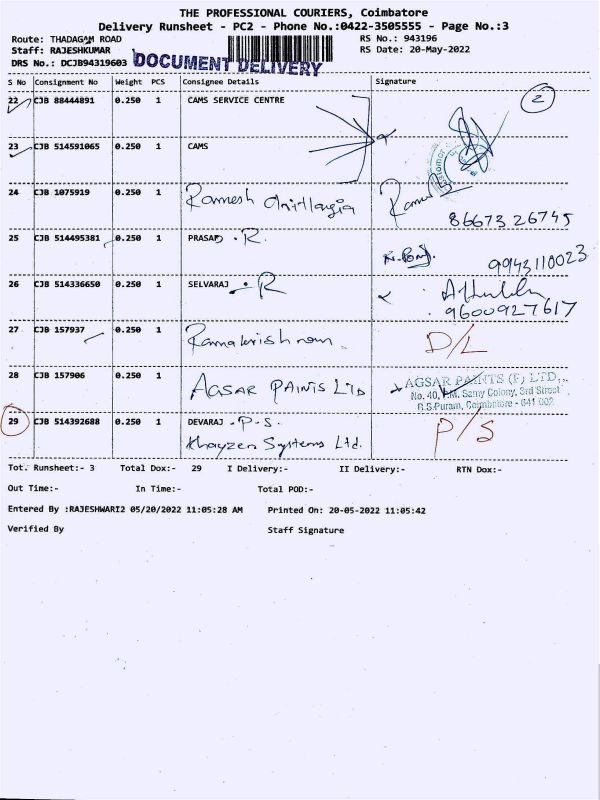 THE PROFESSIONAL COURIERS, Coimbatore
Delivery Runsheet - PC2 - Phone No.:0422-3505555 - Page No.:3
Route: THADAGAM ROAD RS No.: 943196
Staff: RAJESHKUMAR RS Date: 20-May-2022
DRS No.: DCJB94319603 DOCUMENT DELIVERY
S No Consignment No Weight PCS Consignee Details Signature
22 CJB 88444891 0.250 1 CAMS SERVICE CENTRE 2
23 CJB 514591065 0.250 1 CAMS
24 CJB 1075919 0.250 1 Ramesh
86673 26745
25 CJB 514495381 0.250 1 PRASAD . R.
9943110023
26 CJB 514336650 0.250 1 SELVARAJ . R
9600927617
27 CJB 157937 0.250 1 Ramakrishnan. D/L
28 CJB 157906 0.250 1 AGSAR PAINTS LTD AGSAR PAINTS (P) LTD.,
No. 40, P.M. Samy Colony, 3rd Street
R.S.Puram, Coimbatore - 641 002
29 CJB 514392688 0.250 1 DEVARAJ . P. S. P/S
Khayzen Systems Ltd.
Tot. Runsheet:- 3 Total Dox:- 29 I Delivery:- II Delivery:- RTN Dox:-
Out Time:- In Time:- Total POD:-
Entered By :RAJESHWARI2 05/20/2022 11:05:28 AM Printed On: 20-05-2022 11:05:42
Verified By Staff Signature